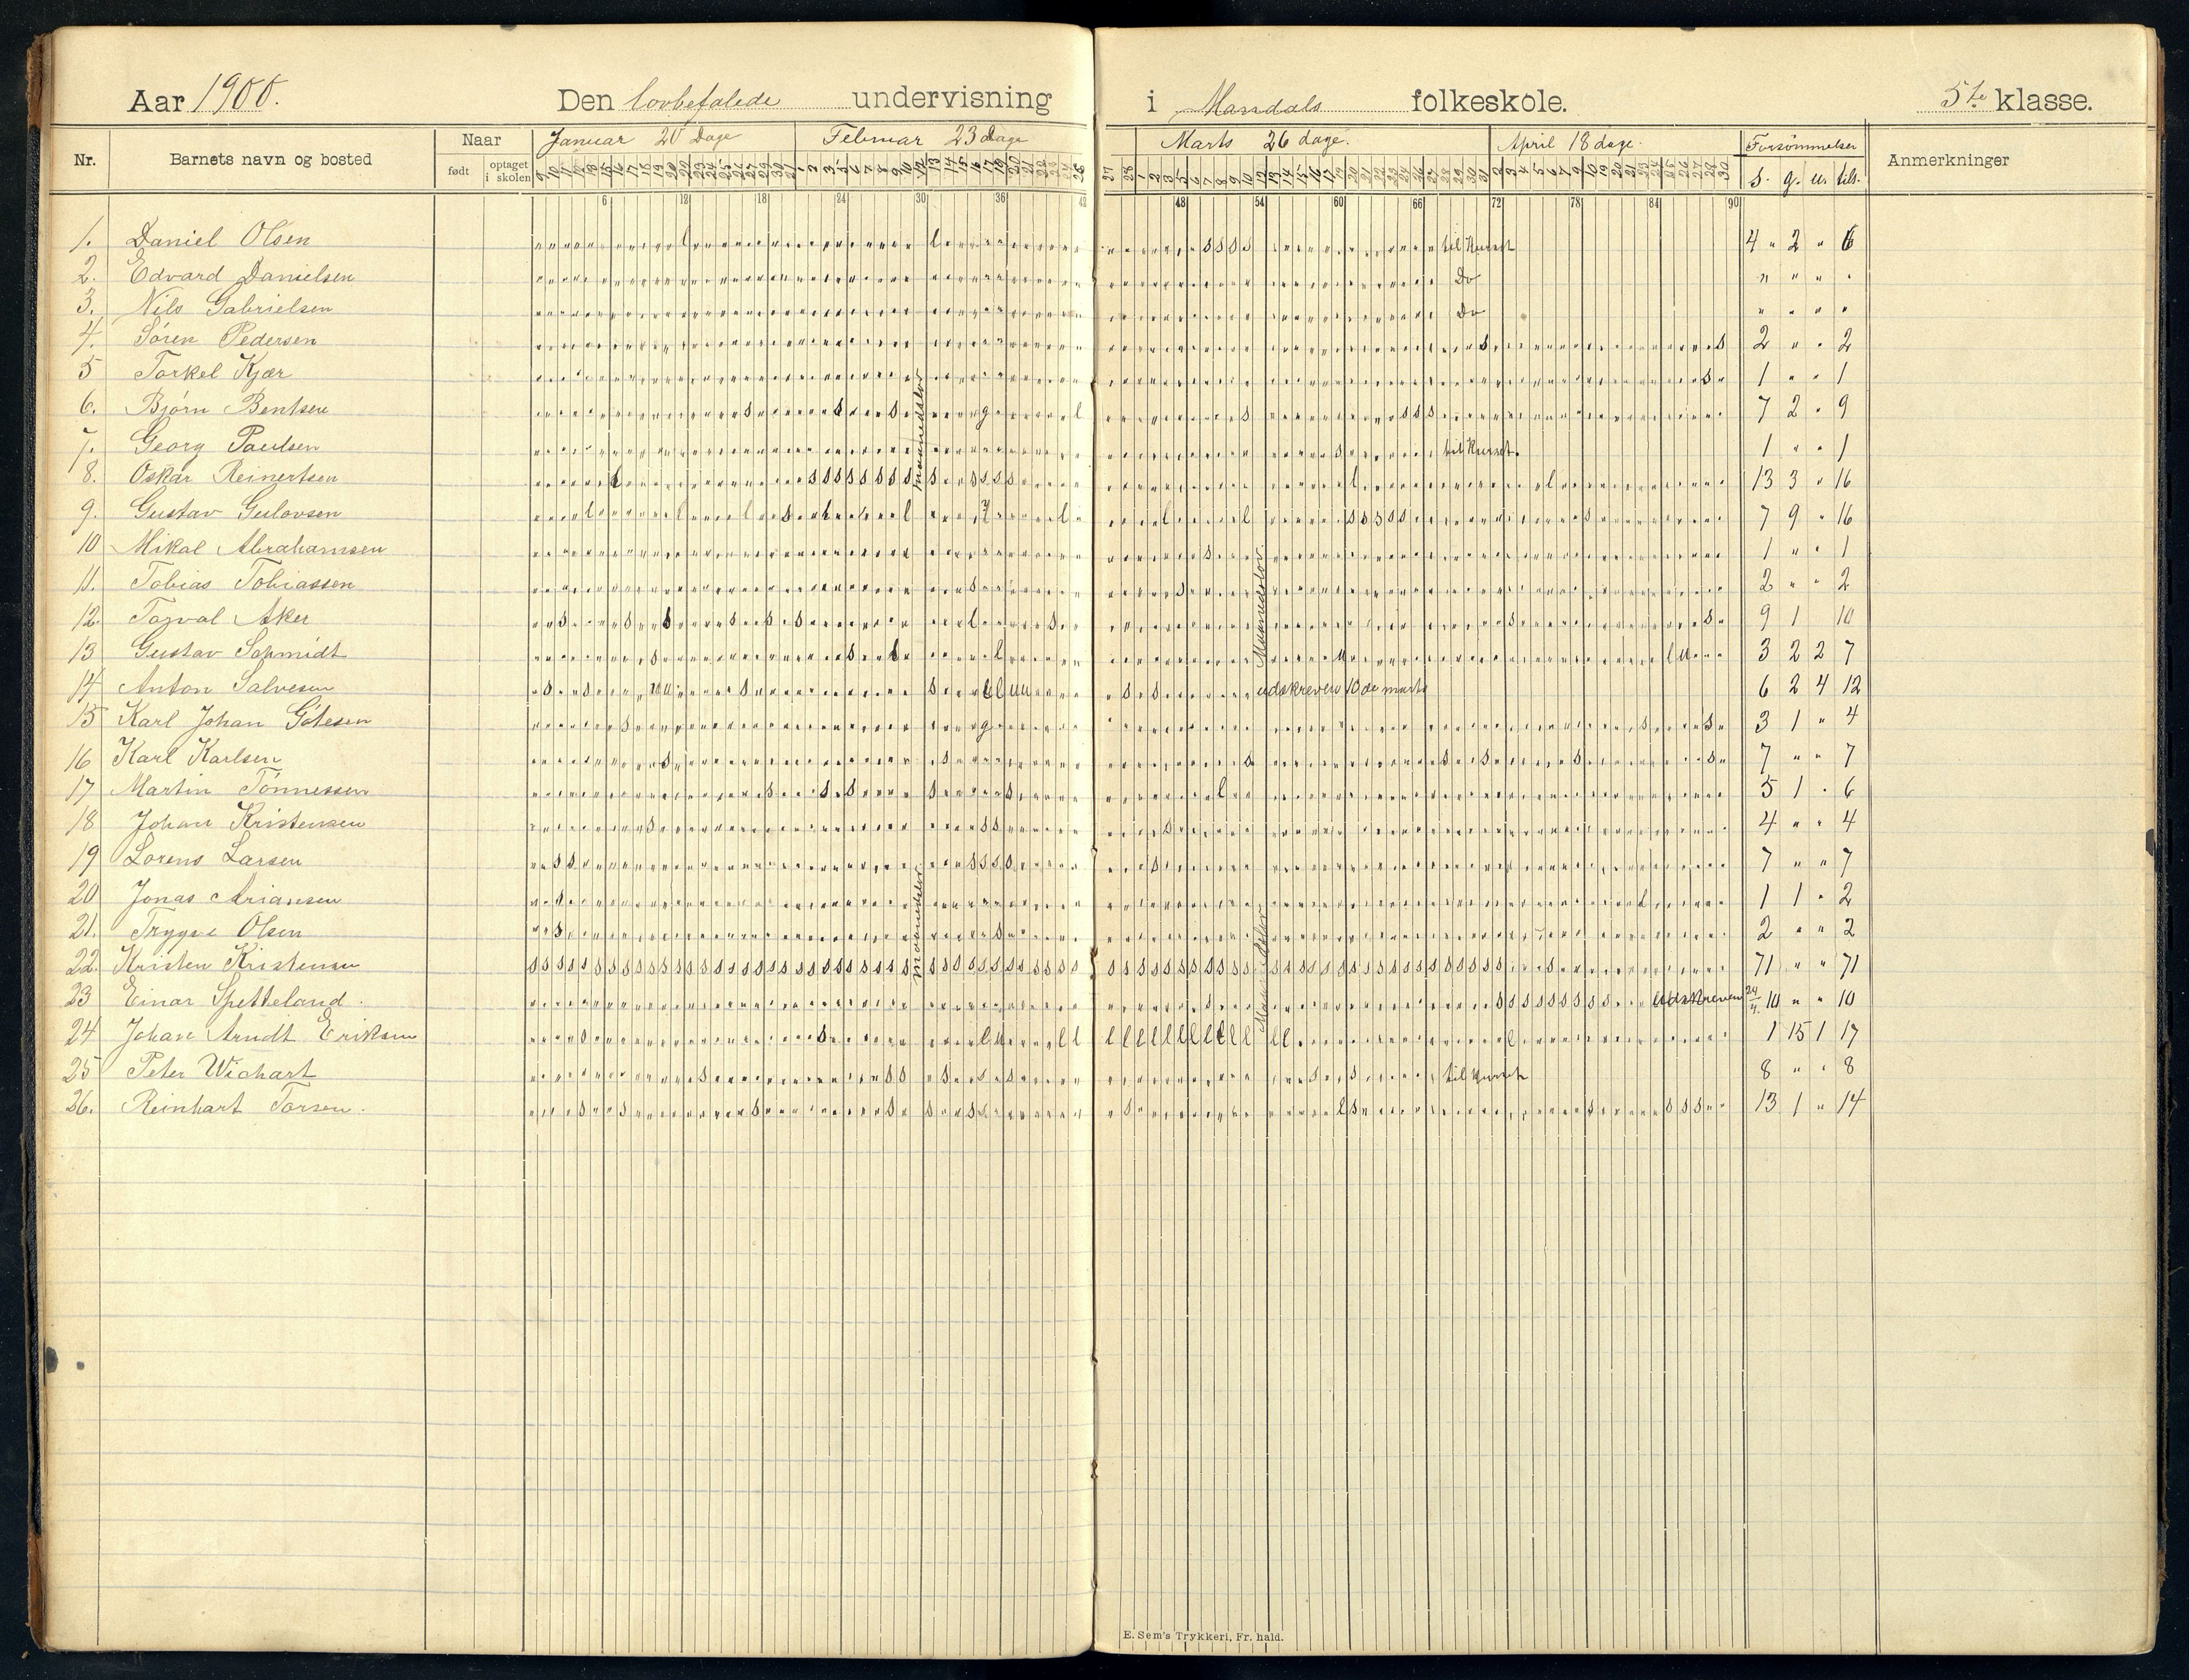 Aar 1900. Den lovbefalede undervisning i Mandals folkeskole. 5te klasse.
Nr. Barnets navn og bosted Naar født optaget i skolen Januar 20 Dage Februar 23 Dage Marts 26 dage. April 18 dage. Forsømmelser s. g. u. tils. Anmerkninger
6 12 18 24 30 36 42 48 54 60 66 72 78 84 90
1. Daniel Olsen til Kurset 4 " 2 " 6
2. Edvard Danielsen Do " " " "
3. Nils Gabrielsen Do " " " "
4. Søren Pedersen 2 " " 2
5 Torkel Kjær 1 " " 1
6. Bjørn Bentsen 7 2 " 9
7. Georg Paulsen til Kurset. 1 " " 1
8. Oskar Reinertsen 13 3 " 16
9. Gustav Gulovsen 7 9 " 16
10 Mikal Abrahamsen 1 " " 1
11. Tobias Tobiassen 2 " " 2
12. Torval Aker 9 1 10
13 Gustav Schmidt 3 2 2 7
14 Anton Salvesen udskreven 10de marts 6 2 4 12
15 Karl Johan Gotesen 3 1 " 4
16 Karl Karlsen 7 " " 7
17 Martin Tønnessen 5 1 " 6
18 Johan Kristensen 4 " " 4
19 Lorens Larsen 7 " " 7
20 Jonas Ariansen 1 1 " 2
21. Trygve Olsen 2 " " 2
22. Kristen Kristensen 71 " " 71
23 Einar Spetteland. Udskreven 24/4. 10 " " 10
24 Johan Arndt Eriksen 1 15 1 17
25 Peter Wichart til Kurset 8 " " 8
26. Reinhart Torsen. 13 1 " 14
maanedslov
maanedslov
Maanedslov
Maanedslov
E. Sem's Trykkeri, Fr. hald.